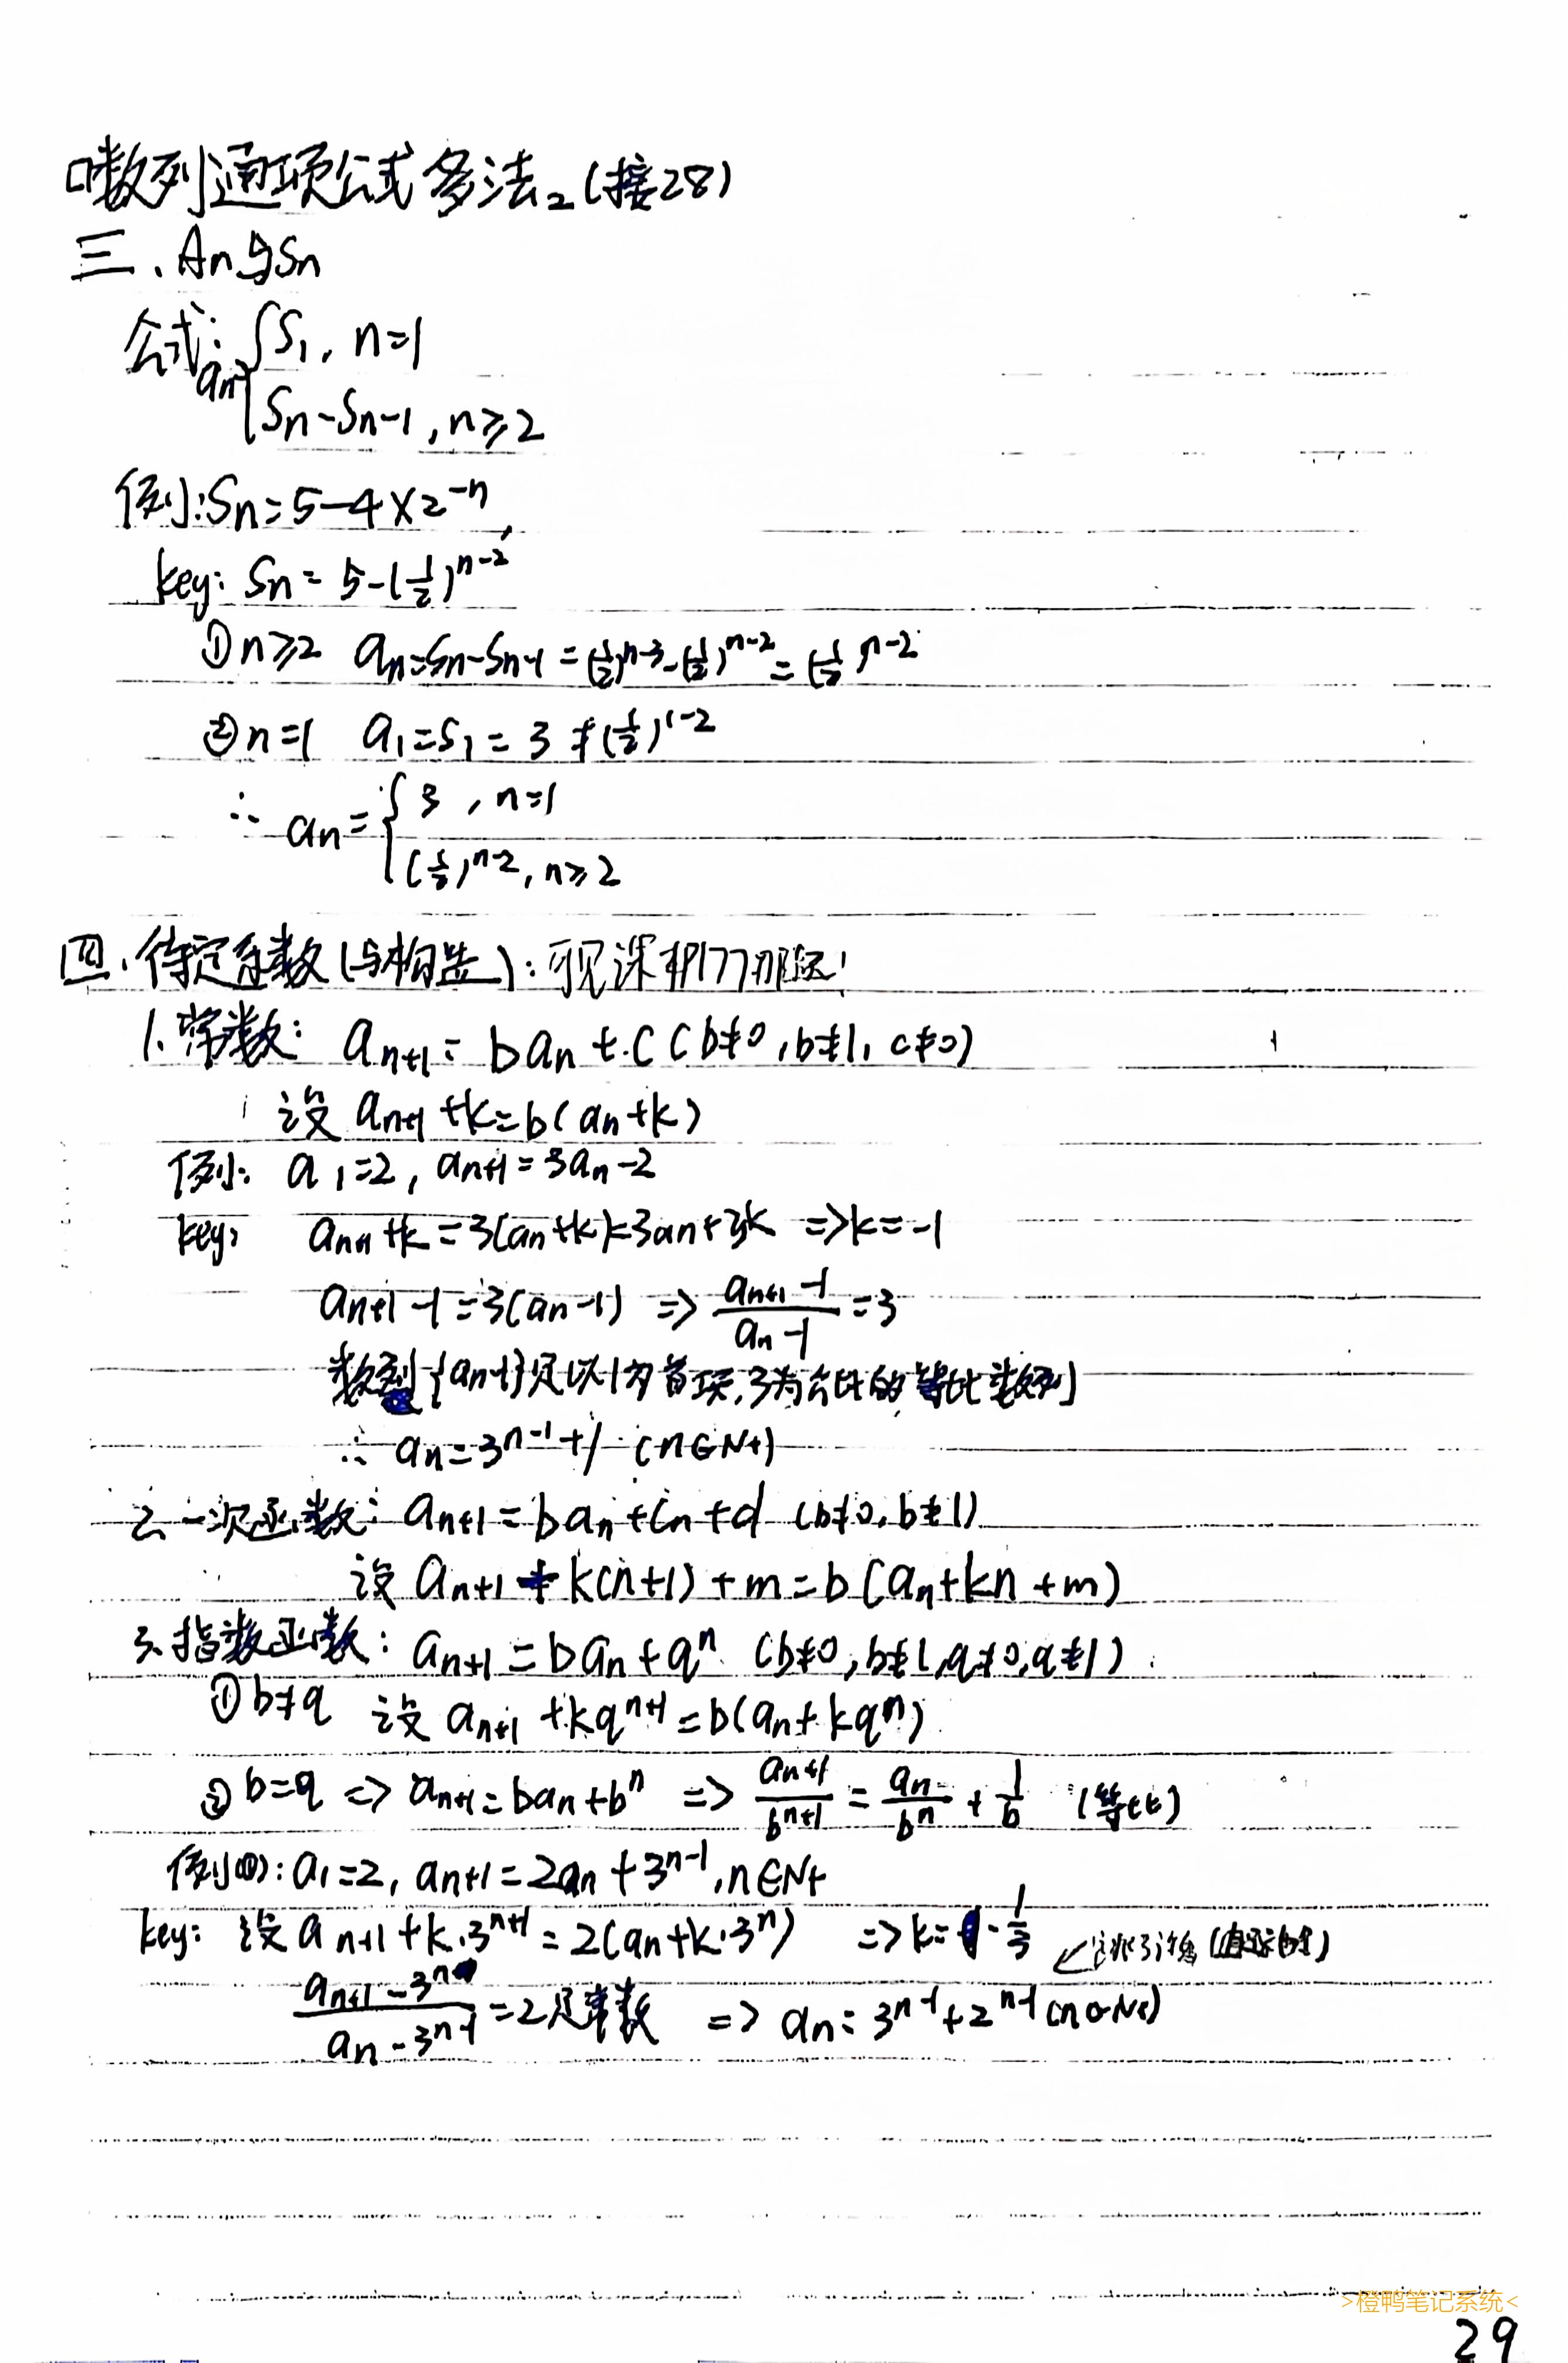 口数列通项公式多法₂(接28)
三、An与Sn
公式: an { S₁, n=1
Sn-Sn-1, n≥2
例: Sn=5-4×2⁻ⁿ,
key: Sn = 5-(1/2)ⁿ⁻²
①n≥2 an=Sn-Sn-1 = (1/2)ⁿ⁻³-(1/2)ⁿ⁻² = (1/2)ⁿ⁻²
②n=1 a₁=S₁=3≠(1/2)¹⁻²
∴ an= { 3, n=1
(1/2)ⁿ⁻², n≥2
四、待定系数(与构造): 可见课
1.常数: an+1 = ban + c (b≠0, b≠1, c≠0)
设 an+1 +k=b(an+k)
例: a₁=2, an+1=3an-2
key: an+1+k=3(an+k)=3an+3k ⇒k=-1
an+1-1=3(an-1) ⇒ (an+1 -1)/(an -1)=3
数列{an-1}是以1为首项,3为公比的等比数列
∴ an=3ⁿ⁻¹+1 (n∈N+)
2.一次函数: an+1=ban+cn+d (b≠0, b≠1)
设 an+1+k(n+1)+m=b(an+kn+m)
3.指数函数: an+1=ban+qⁿ (b≠0, b≠1, q≠0, q≠1)
①b≠q 设 an+1 +kqⁿ⁺¹=b(an+kqⁿ)
②b=q ⇒ an+1=ban+bⁿ ⇒ an+1/bⁿ⁺¹ = an/bⁿ + 1/b (等比)
例(①): a₁=2, an+1=2an+3ⁿ⁻¹, n∈N+
key: 设 an+1+k·3ⁿ⁺¹=2(an+k·3ⁿ) ⇒k=-1/3
(an+1-3ⁿ)/(an-3ⁿ⁻¹)=2是常数 ⇒ an=3ⁿ⁻¹+2ⁿ⁻¹(n∈N+)
>橙鸭笔记系统<
29